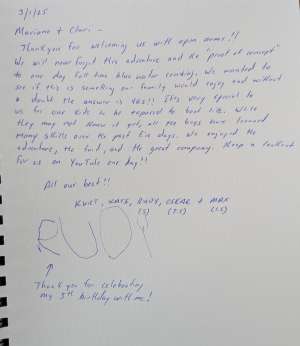 3/1/25
Mariano + Cheri -
Thank you for welcoming us with open arms!!
We will never forget this adventure and the "proof of concept"
to one day full time blue water cruising. We wanted to
see if this is something our family would enjoy and without
a doubt the answer is YES!! It's very special to
us for our kids to be exposed to boat life. While
they may not know it yet, all the boys have learned
many skills over the past five days. We enjoyed the
adventure, the food, and the great company. Keep a lookout
for us on YouTube one day!!
All our best!!
KURT, KATE, RUDY, OSKAR + MAX
(5) (3.5) (1.5)
RUDY
Thank you for celebrating
my 5th birthday with me!